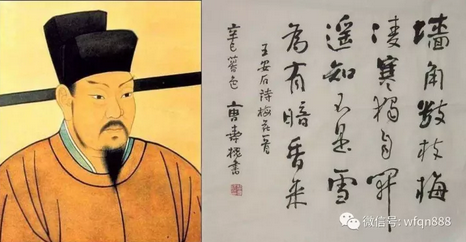 墙角数枝梅
凌寒独自开
遥知不是雪
为有暗香来
王安石诗梅花一首
唐书
微信号: wfqn888